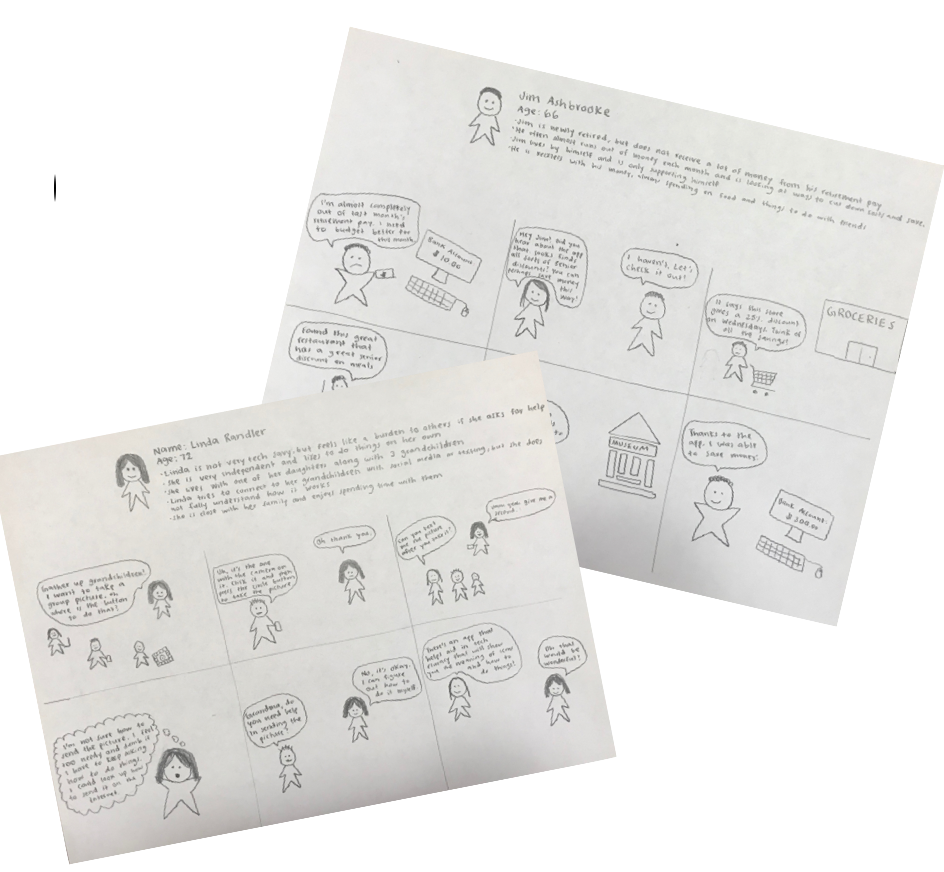 Jim Ashbrooke
Age: 66
·Jim is newly retired, but does not receive a lot of money from his retirement pay
·He often almost runs out of money each month and is looking at ways to cut down costs and save.
·Jim lives by himself and is only supporting himself
·He is reckless with his money, always spending on food and things to do with friends
I'm almost completely
out of last month's
retirement pay. I need
to budget better for
this month
Bank Account
$10.00
Hey Jim! Did you
hear about the app
that looks finds
all sorts of senior
discounts? You can
perhaps save money
this
way!
I haven't. Let's
check it out!
It says this store
gives a 25% discount
on Wednesdays. Think of
all the savings!
GROCERIES
Found this great
restaurant that
has a great senior
discount on meals
MUSEUM
Thanks to the
app, I was able
to save money.
Bank Account:
$300.00
Name: Linda Randler
Age: 72
·Linda is not very tech savvy, but feels like a burden to others if she asks for help
·She is very independent and likes to do things on her own
·She lives with one of her daughters along with 3 grandchildren
·Linda tries to connect to her grandchildren with social media or texting, but she does
not fully understand how it works
·She is close with her family and enjoys spending time with them
Gather up grandchildren!
I want to take a
group picture, oh
where is the button
to do that!
Uh, it's the one
with the camera on
it. Click it and then
press the circle button
to take the picture
Oh thank you.
Can you text
me the picture
after you take it?
give me a
second.
I'm not sure how to
send the picture. I feel
too needy and dumb if
I have to keep asking
how to do things.
I could look up how
to send it on the
Internet.
Grandma, do
you need help
in sending the
picture?
No, it's okay.
I can figure
out how to
do it myself
There's an app that
helps aid in tech
fluency that will show
you the meaning of icons
and how to
do things!
Oh that
would be
wonderful!